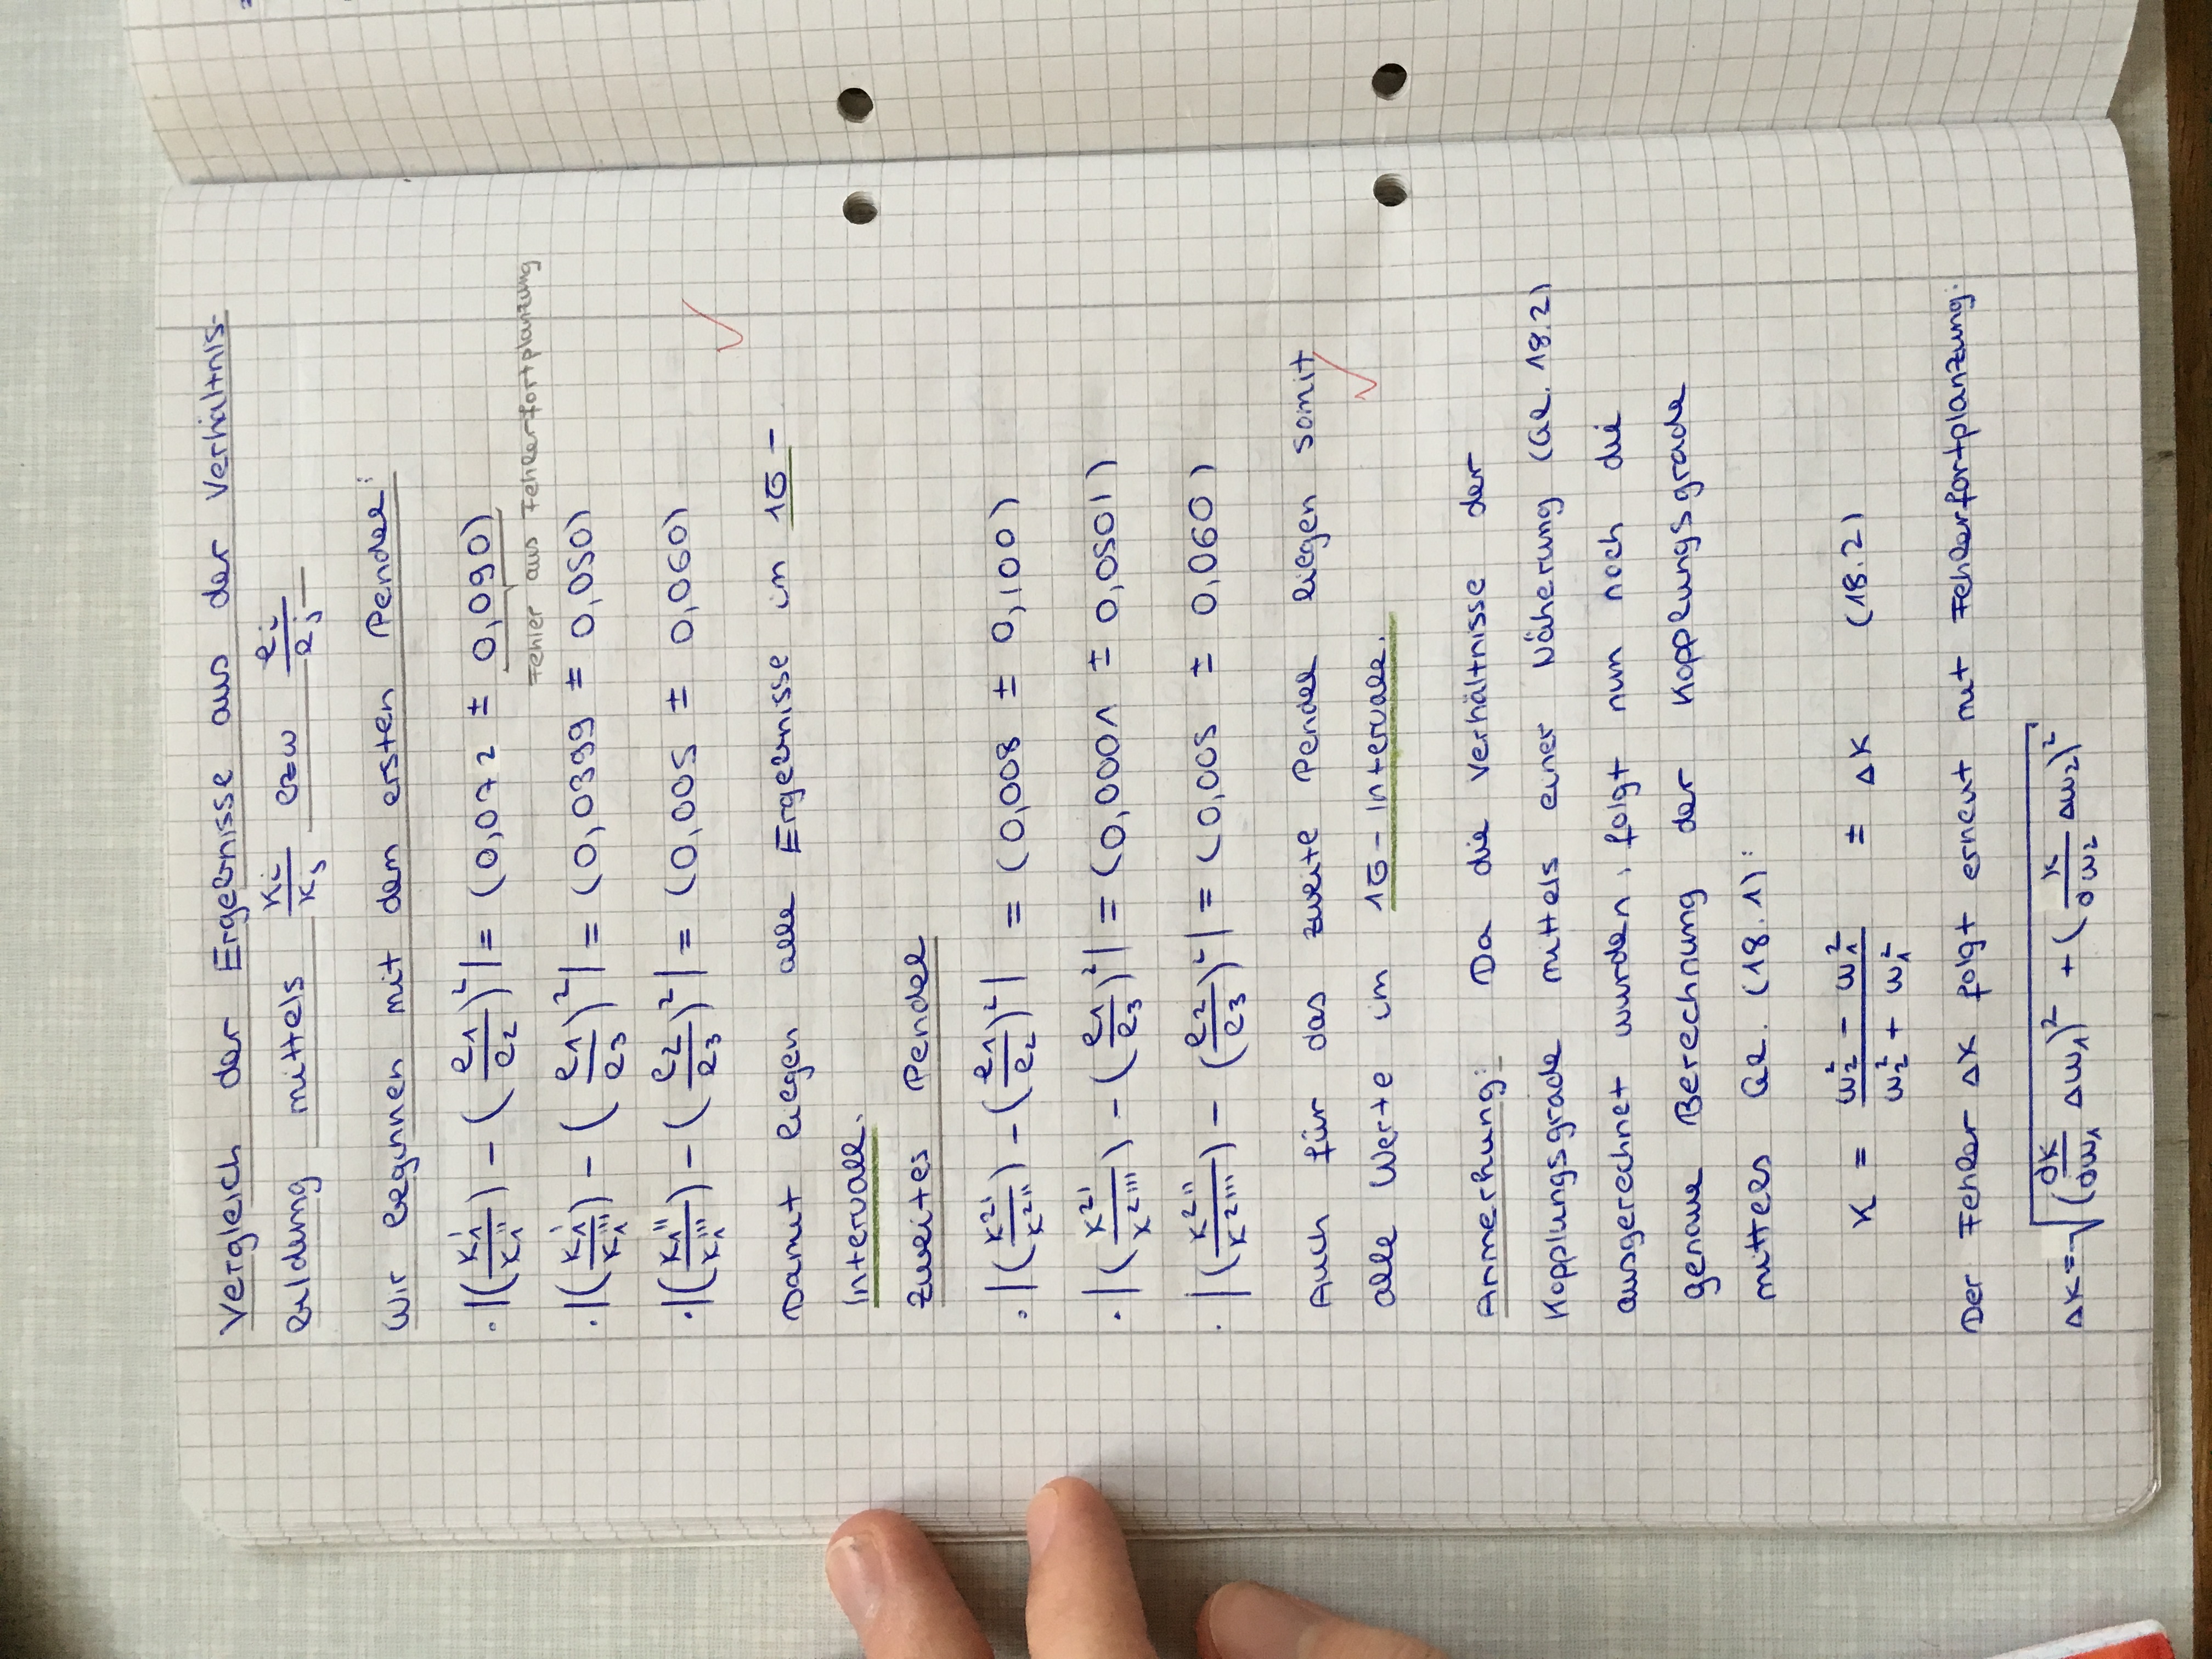 Vergleich der Ergebnisse aus der Verhältnis-
bildung mittels κi/κj bzw ei/ej
Wir beginnen mit dem ersten Pendel:
· |(κ1'/κ1'') - (e1/e2)²| = (0,072 ± 0,090)
Fehler aus Fehlerfortplanzung
· |(κ1'/κ1''') - (e1/e3)²| = (0,0399 ± 0,050)
· |(κ1''/κ1''') - (e2/e3)²| = (0,005 ± 0,060)
Damit liegen alle Ergebnisse im 1σ-
Intervall.
Zweites Pendel
· |(κ2'/κ2'') - (e1/e2)²| = (0,008 ± 0,100)
· |(κ2'/κ2''') - (e1/e3)²| = (0,0001 ± 0,0501)
· |(κ2''/κ2''') - (e2/e3)²| = (0,005 ± 0,060)
Auch für das zweite Pendel liegen somit
alle Werte im 1σ-Intervall.
Anmerkung: Da die Verhältnisse der
Kopplungsgrade mittels einer Näherung (Gl. 18.2)
ausgerechnet wurden, folgt nun noch die
genaue Berechnung der Kopplungsgrade
mittels Gl. (18.1):
κ = (ω2² - ω1²)/(ω2² + ω1²) ± Δκ (18.2)
Der Fehler Δκ folgt erneut mit Fehlerfortplanzung:
Δκ = √((∂κ/∂ω1 Δω1)² + (κ/∂ω2 Δω2)²)